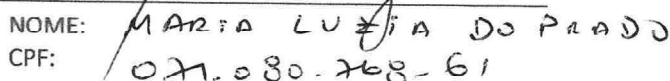 NOME: MARIA LUZIA DO PRADO
CPF: 071.080.768-61